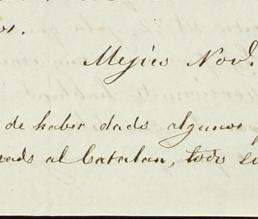 os.
Mejico Nov.
de haber dado algunos
rads al Catalan, todo su